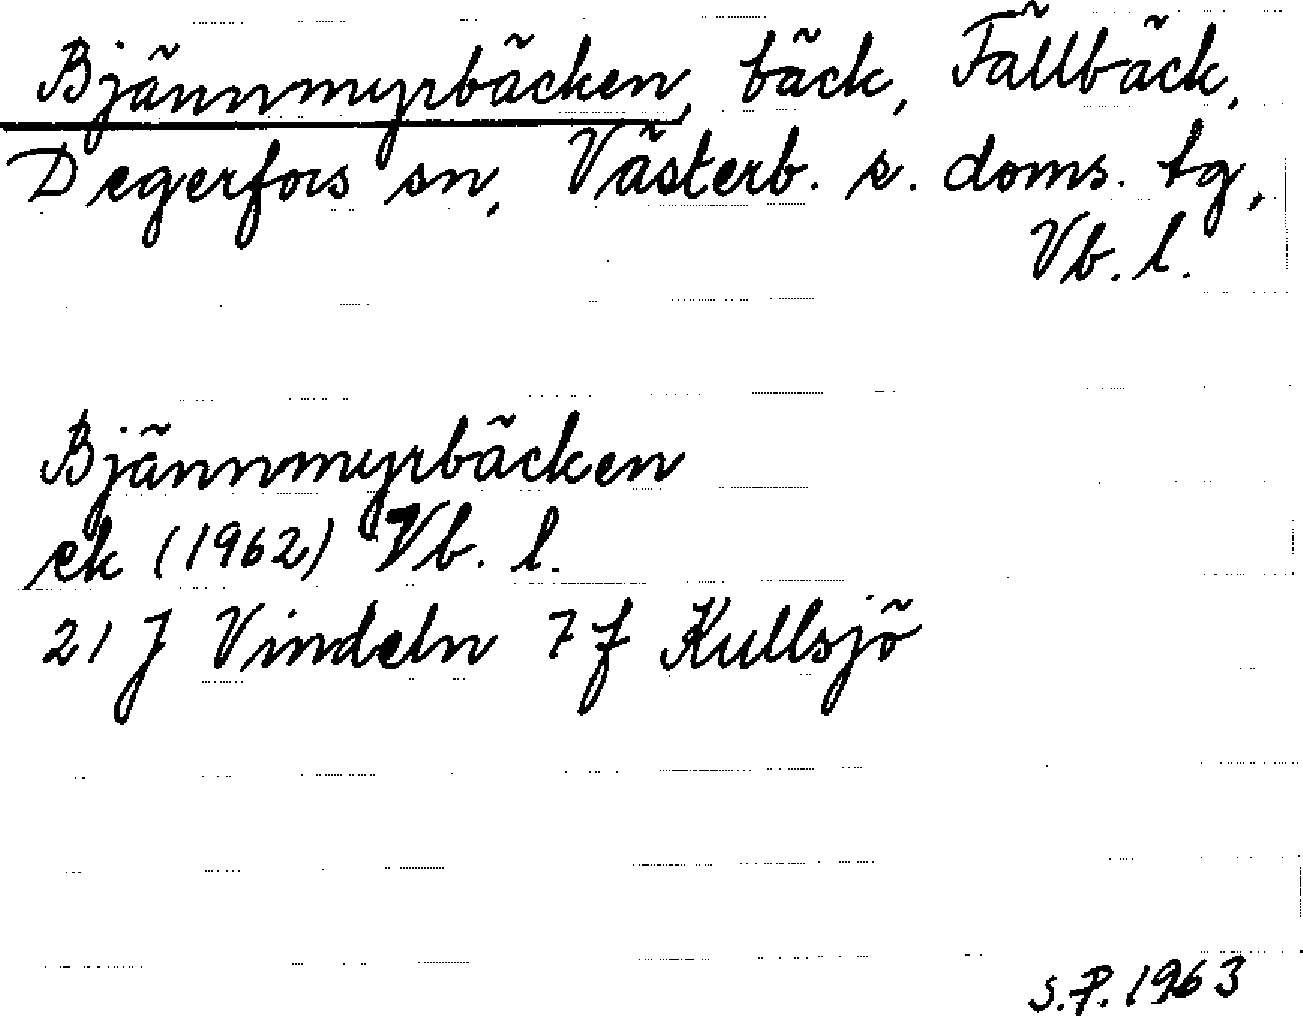 Bjännmyrbäcken, bäck, Fällbäck,
Degerfors sn, Västerb. s. doms. tg,
Vb. l.
Bjännmyrbäcken
ek (1962) Vb. l.
21 J Vindeln 7 f Kullsjö
S.P. 1963